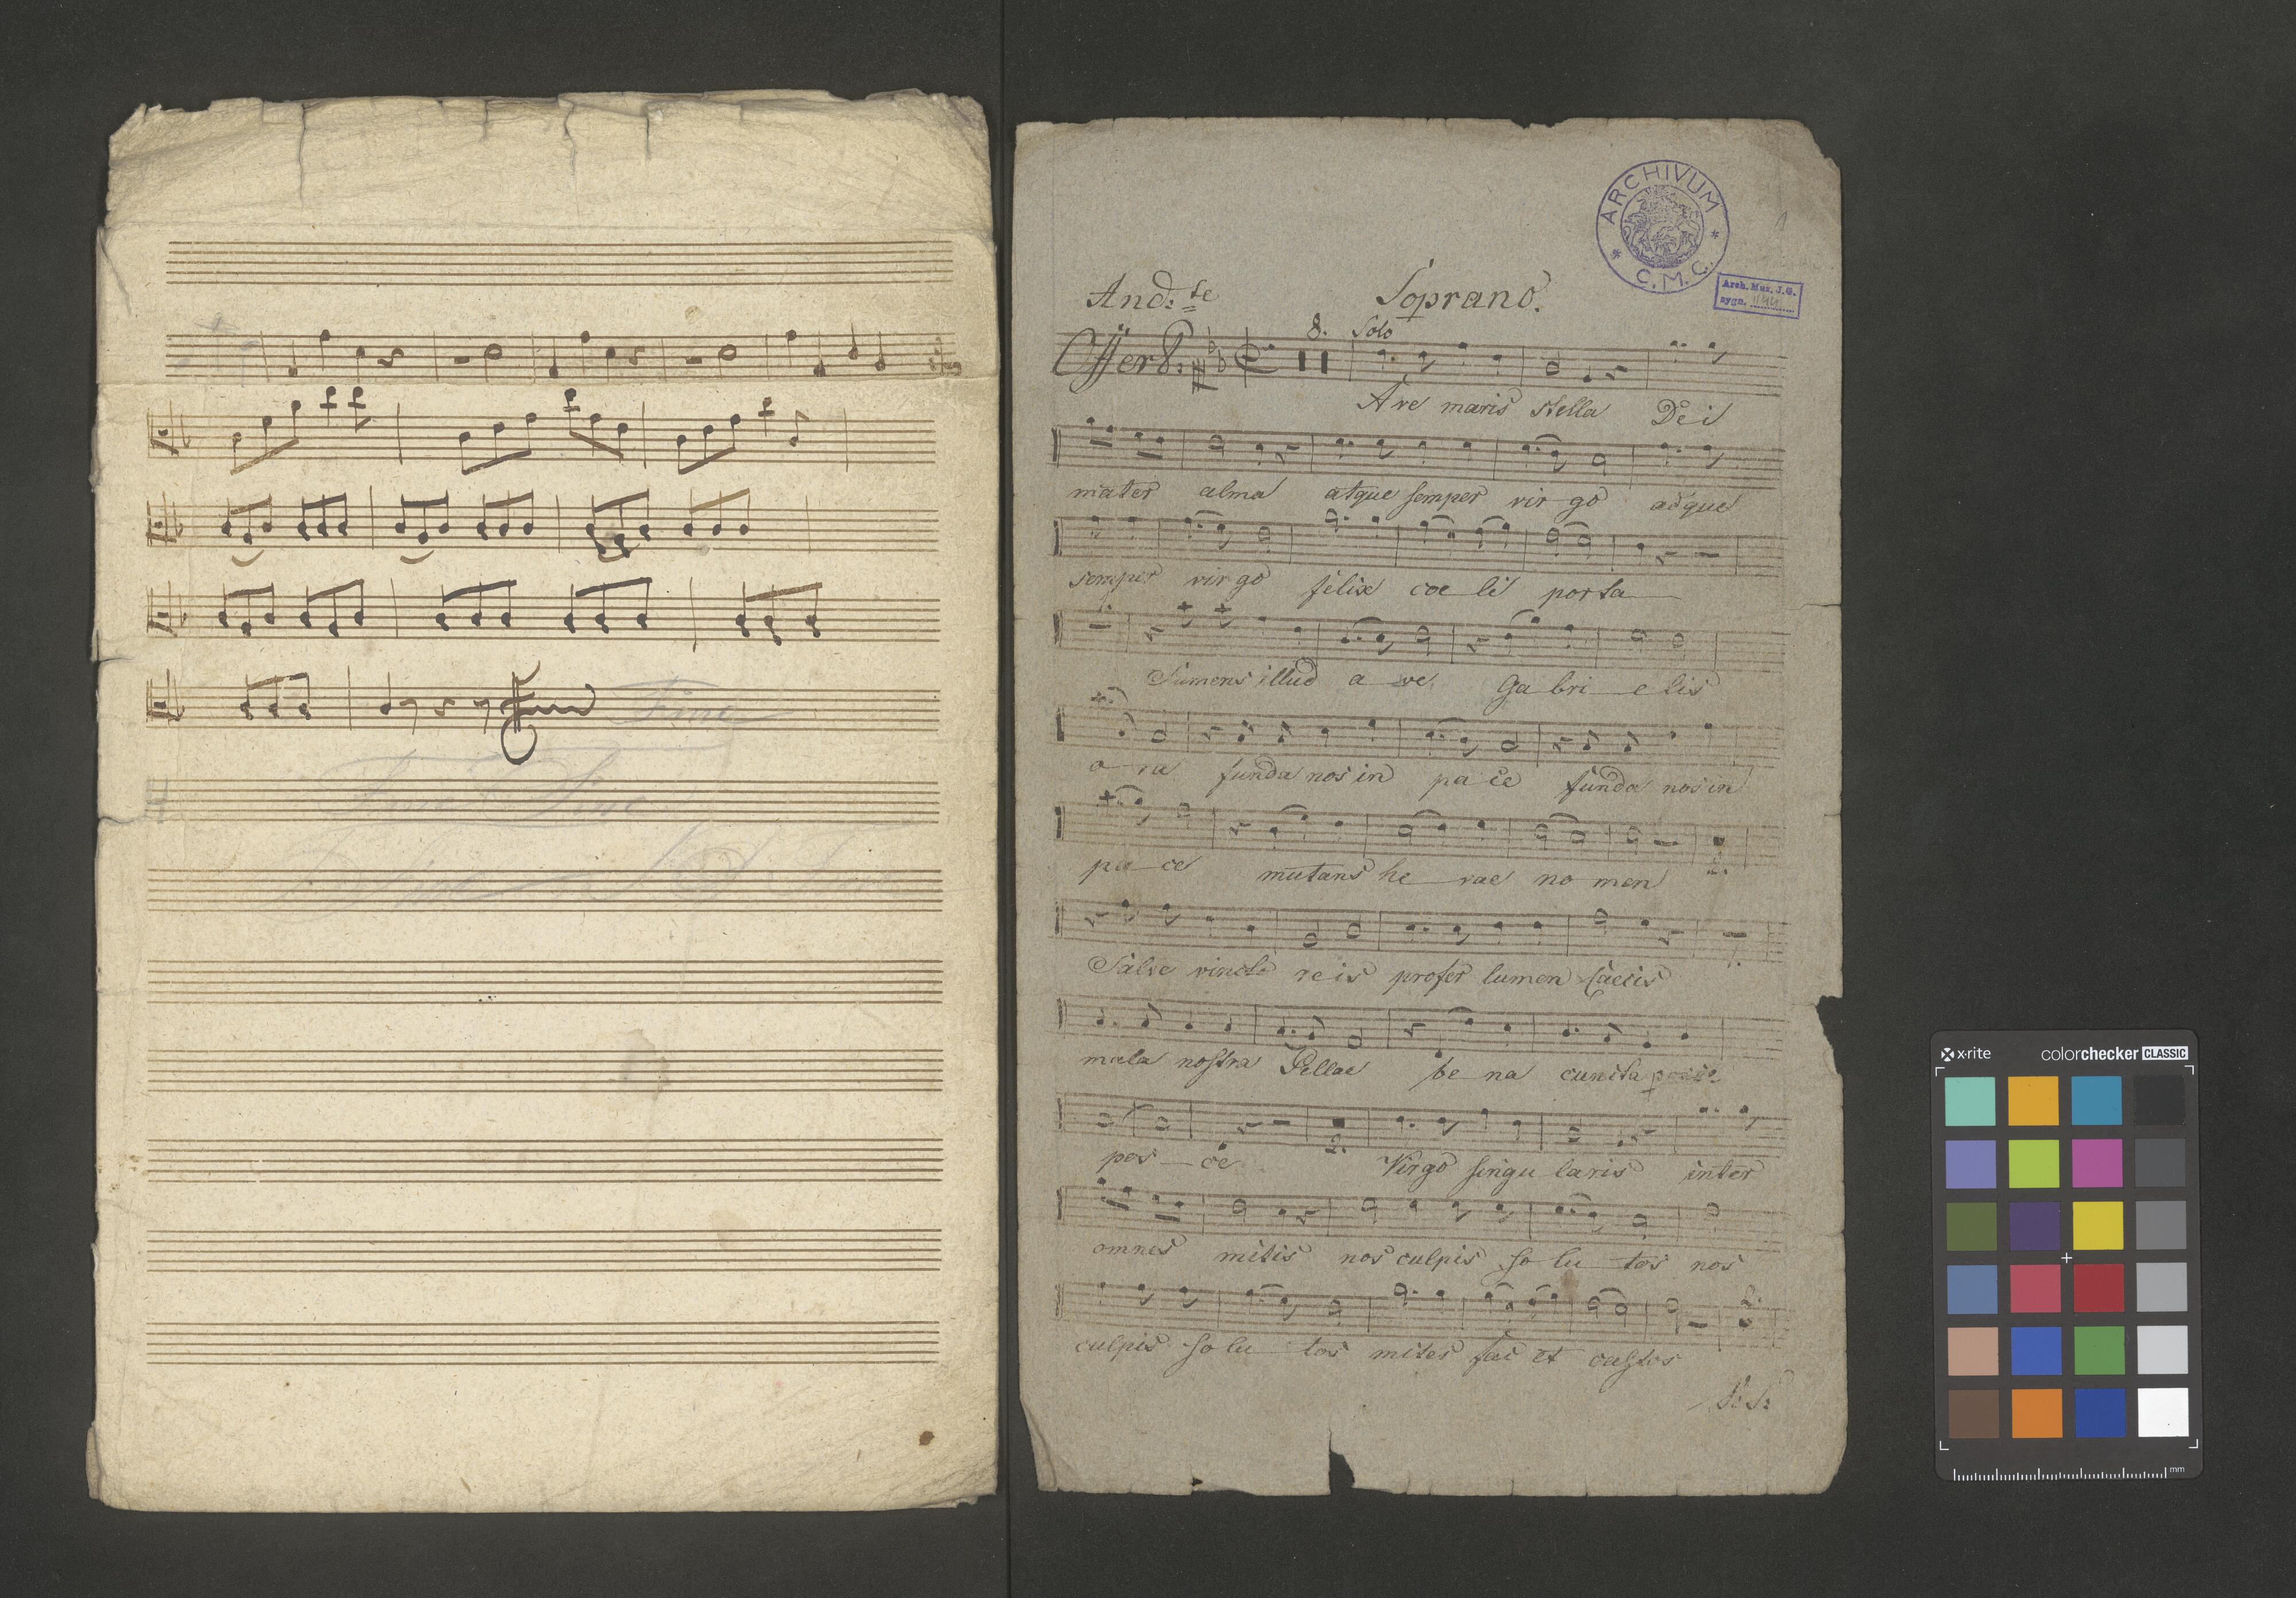 Fine
Fine Fine
ARCHIVUM
* C.M.C. *
1
Arch. Muz. J.G.
sygn. 1144
And:te Soprano.
8. Solo
Offert:
Ave maris stella Dei
mater alma atque semper vir go adque
semper vir go felix coe li porta
Sumens illud a ve Ga bri e lis
o ra funda nos in pa ce funda nos in
pa ce mutans he vae no men
2.
Salve vincle re is profer lumen Caecis
mala nostra Pellae be na cuncta
pos ce 2. Virgo singu laris inter
omnes mitis nos culpis so lu tos nos
culpis so lu tos mites fac et castos
V:S:
x·rite colorchecker CLASSIC
mm